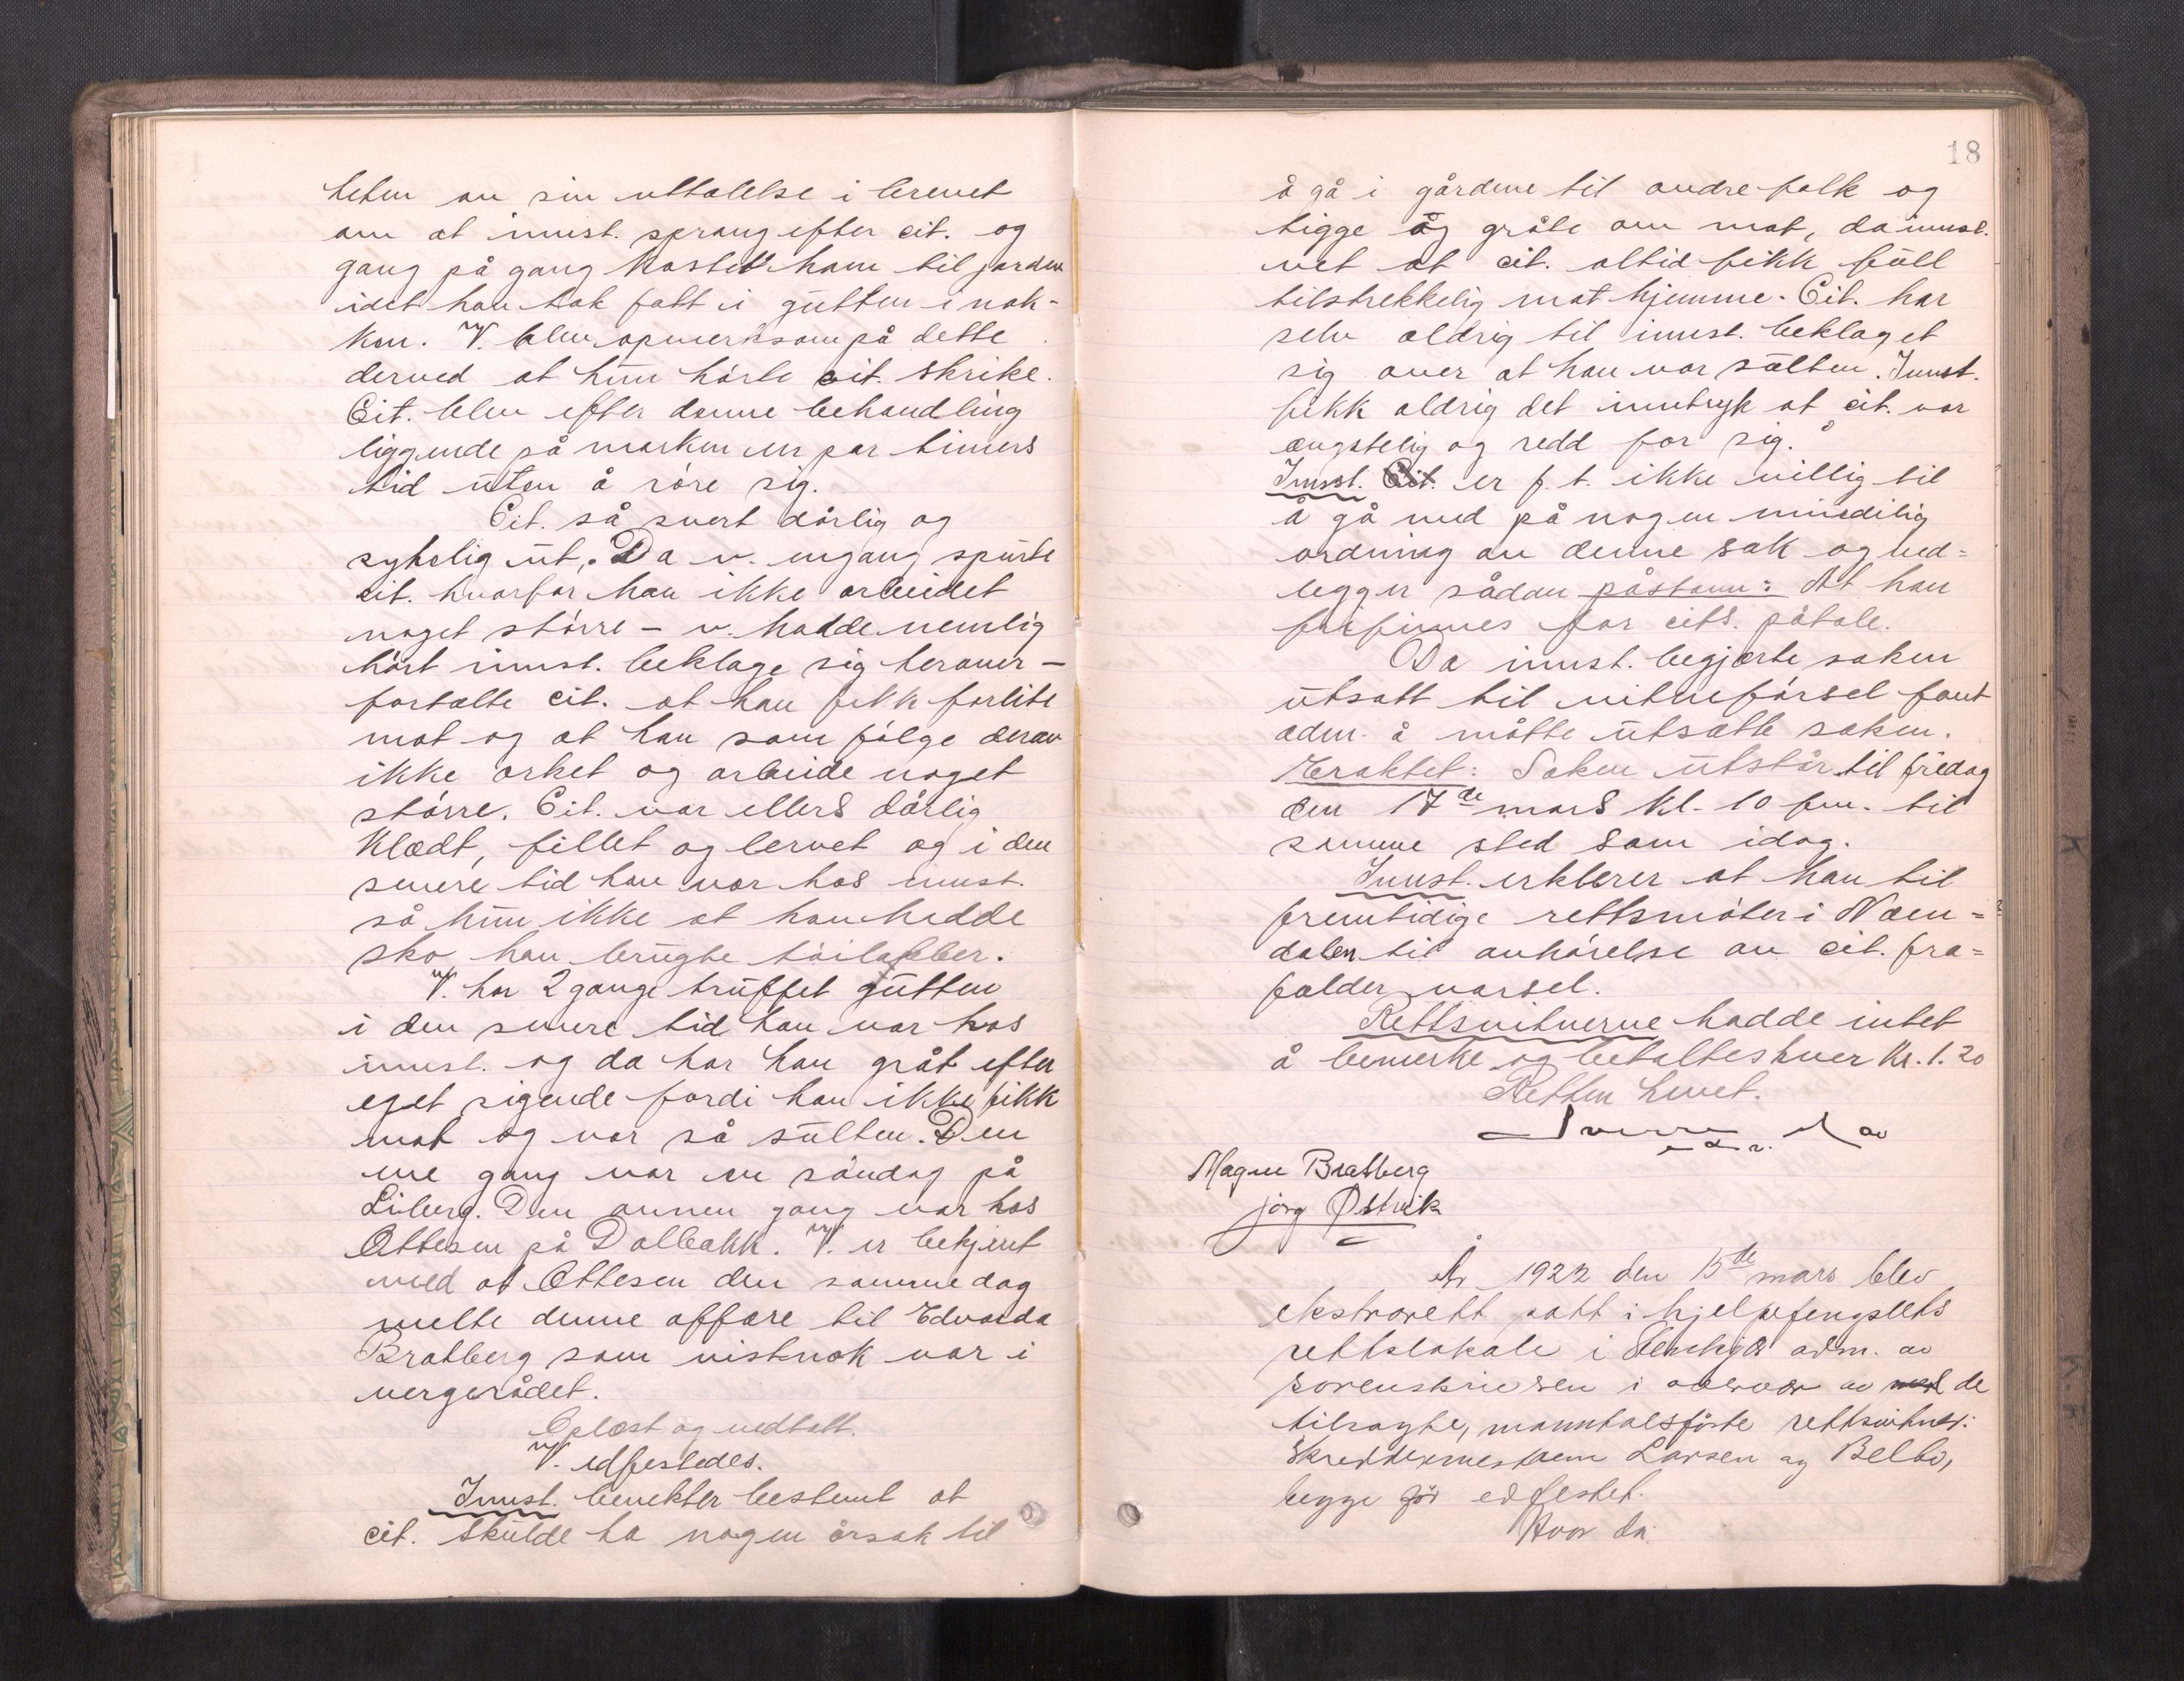 heten av sin uttalelse i brevet
om at innst. sprang efter cit. og
gang på gang kastet ham til jorden
idet han tok fatt i gutten i nak-
ken. V. blev opmerksom på dette
derved at hun hørte cit. skrike.
Cit. blev efter denne behandling
liggende på marken en par timers
tid uten å røre sig.
Cit. så svert dårlig og
sykelig ut. Da v. engang spurte
cit. hvorfor han ikke arbeidet
noget større - v. hadde nemlig
hørt innst. beklage sig herover -
fortalte cit. at han fikk forlite
mat og at han som følge derav
ikke orket og arbeide noget
større. Cit. var ellers dårlig
klædt, fillet og lervet og i den
senere tid han var hos innst.
så hun ikke at han hadde
sko, han brugte tøilapper.
V. har 2 gange truffet gutten
i den senere tid han var hos
innst. og da har han gråt efter
eget sigende fordi han ikke fikk
mat og var så sulten. Den
ene gang var en søndag på
Liberg. Den annen gang var hos
Ottesen på Dalbakk. V. er bekjent
med at Ottesen den samme dag
melte denne affære til Edvarda
Bratberg som vistnok var i
vergerådet.
Oplæst og vedtatt.
V. edfestedes.
Innst. benekter bestemt at
cit. skulde ha nogen årsak til
18
å gå i gårdene til andre folk og
tigge og gråte om mat, da innst.
vet at cit. altid fikk fullt
tilstrekkelig mat hjemme. Cit. har
selv aldrig til innst. beklaget
sig over at han var sulten. Innst.
fikk aldrig det inntryk at cit. var
ængstelig og redd for sig.
Innst. Cit. er f. t. ikke villig til
å gå med på nogen minnelig
ordning av denne sak og ned=
legger sådan påstann: At han
frifinnes for cits. påtale.
Da innst. begjærte saken
utsatt til vitneførsel fant
adm. å måtte utsatte saken.
Eraktet: Saken utstår til fredag
den 17de mars kl. 10 fm. til
samme sted som idag.
Innst. erklerer at han til
fremtidige rettsmøter i Nam=
dalen til anhørelse av cit. fra=
falder varsel.
Rettsvitnerne hadde intet
å bemerke og betaltes hver kr. 1.20
Retten hevet.
Magne Bratberg
Jørg Østvik
År 1922 den 15de mars blev
ekstrarett satt i hjelpefengslets
rettslokale i Steinkjer adm. av
sorenskriveren i nærvær av med de
tilsagte, manntalsførte rettsvitner:
Skreddermestrene Larsen og Belbo,
begge før edfestet.
Hvor da: